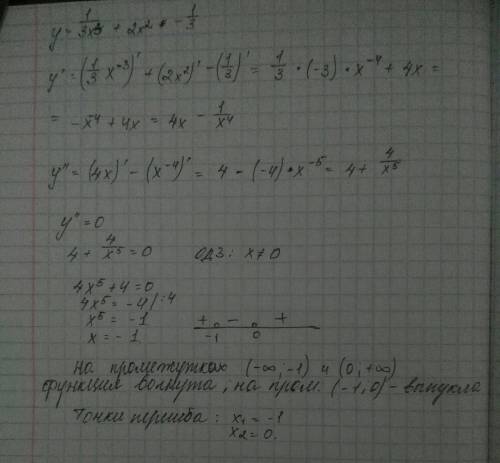 y = 1/(3x³) + 2x² - 1/3
y' = (1/3 x⁻³)' + (2x²)' - (1/3)' = 1/3 · (-3) · x⁻⁴ + 4x =
= -x⁻⁴ + 4x = 4x - 1/x⁴
y'' = (4x)' - (x⁻⁴)' = 4 - (-4) · x⁻⁵ = 4 + 4/x⁵
y'' = 0
4 + 4/x⁵ = 0 ОДЗ: x ≠ 0
4x⁵ + 4 = 0
4x⁵ = -4 /:4
x⁵ = -1
x = -1
+ - +
-1 0
На промежутках (-∞, -1) и (0, +∞)
функция вогнута, на пром. (-1, 0) - выпукла
Точки перегиба: x₁ = -1
x₂ = 0.